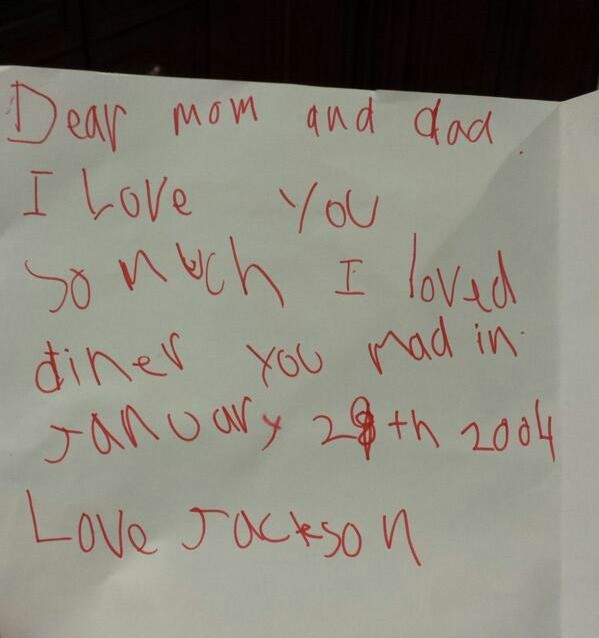 Dear mom and dad.
I Love you
so much I loved
diner you mad in
January 28th 2004
Love Jackson